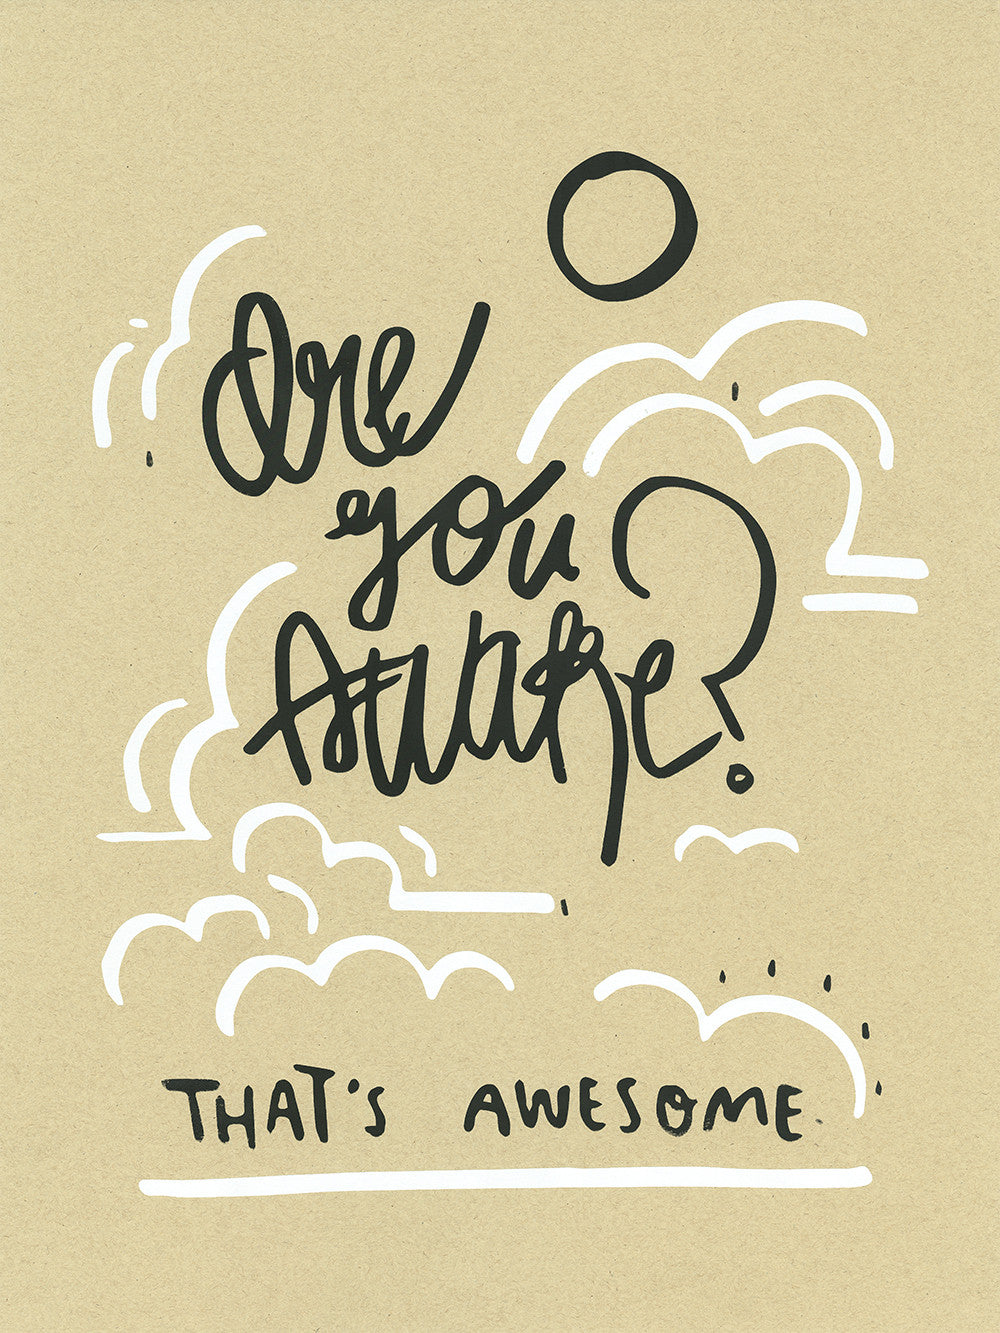 Are
you
Awake?
THAT'S AWESOME.